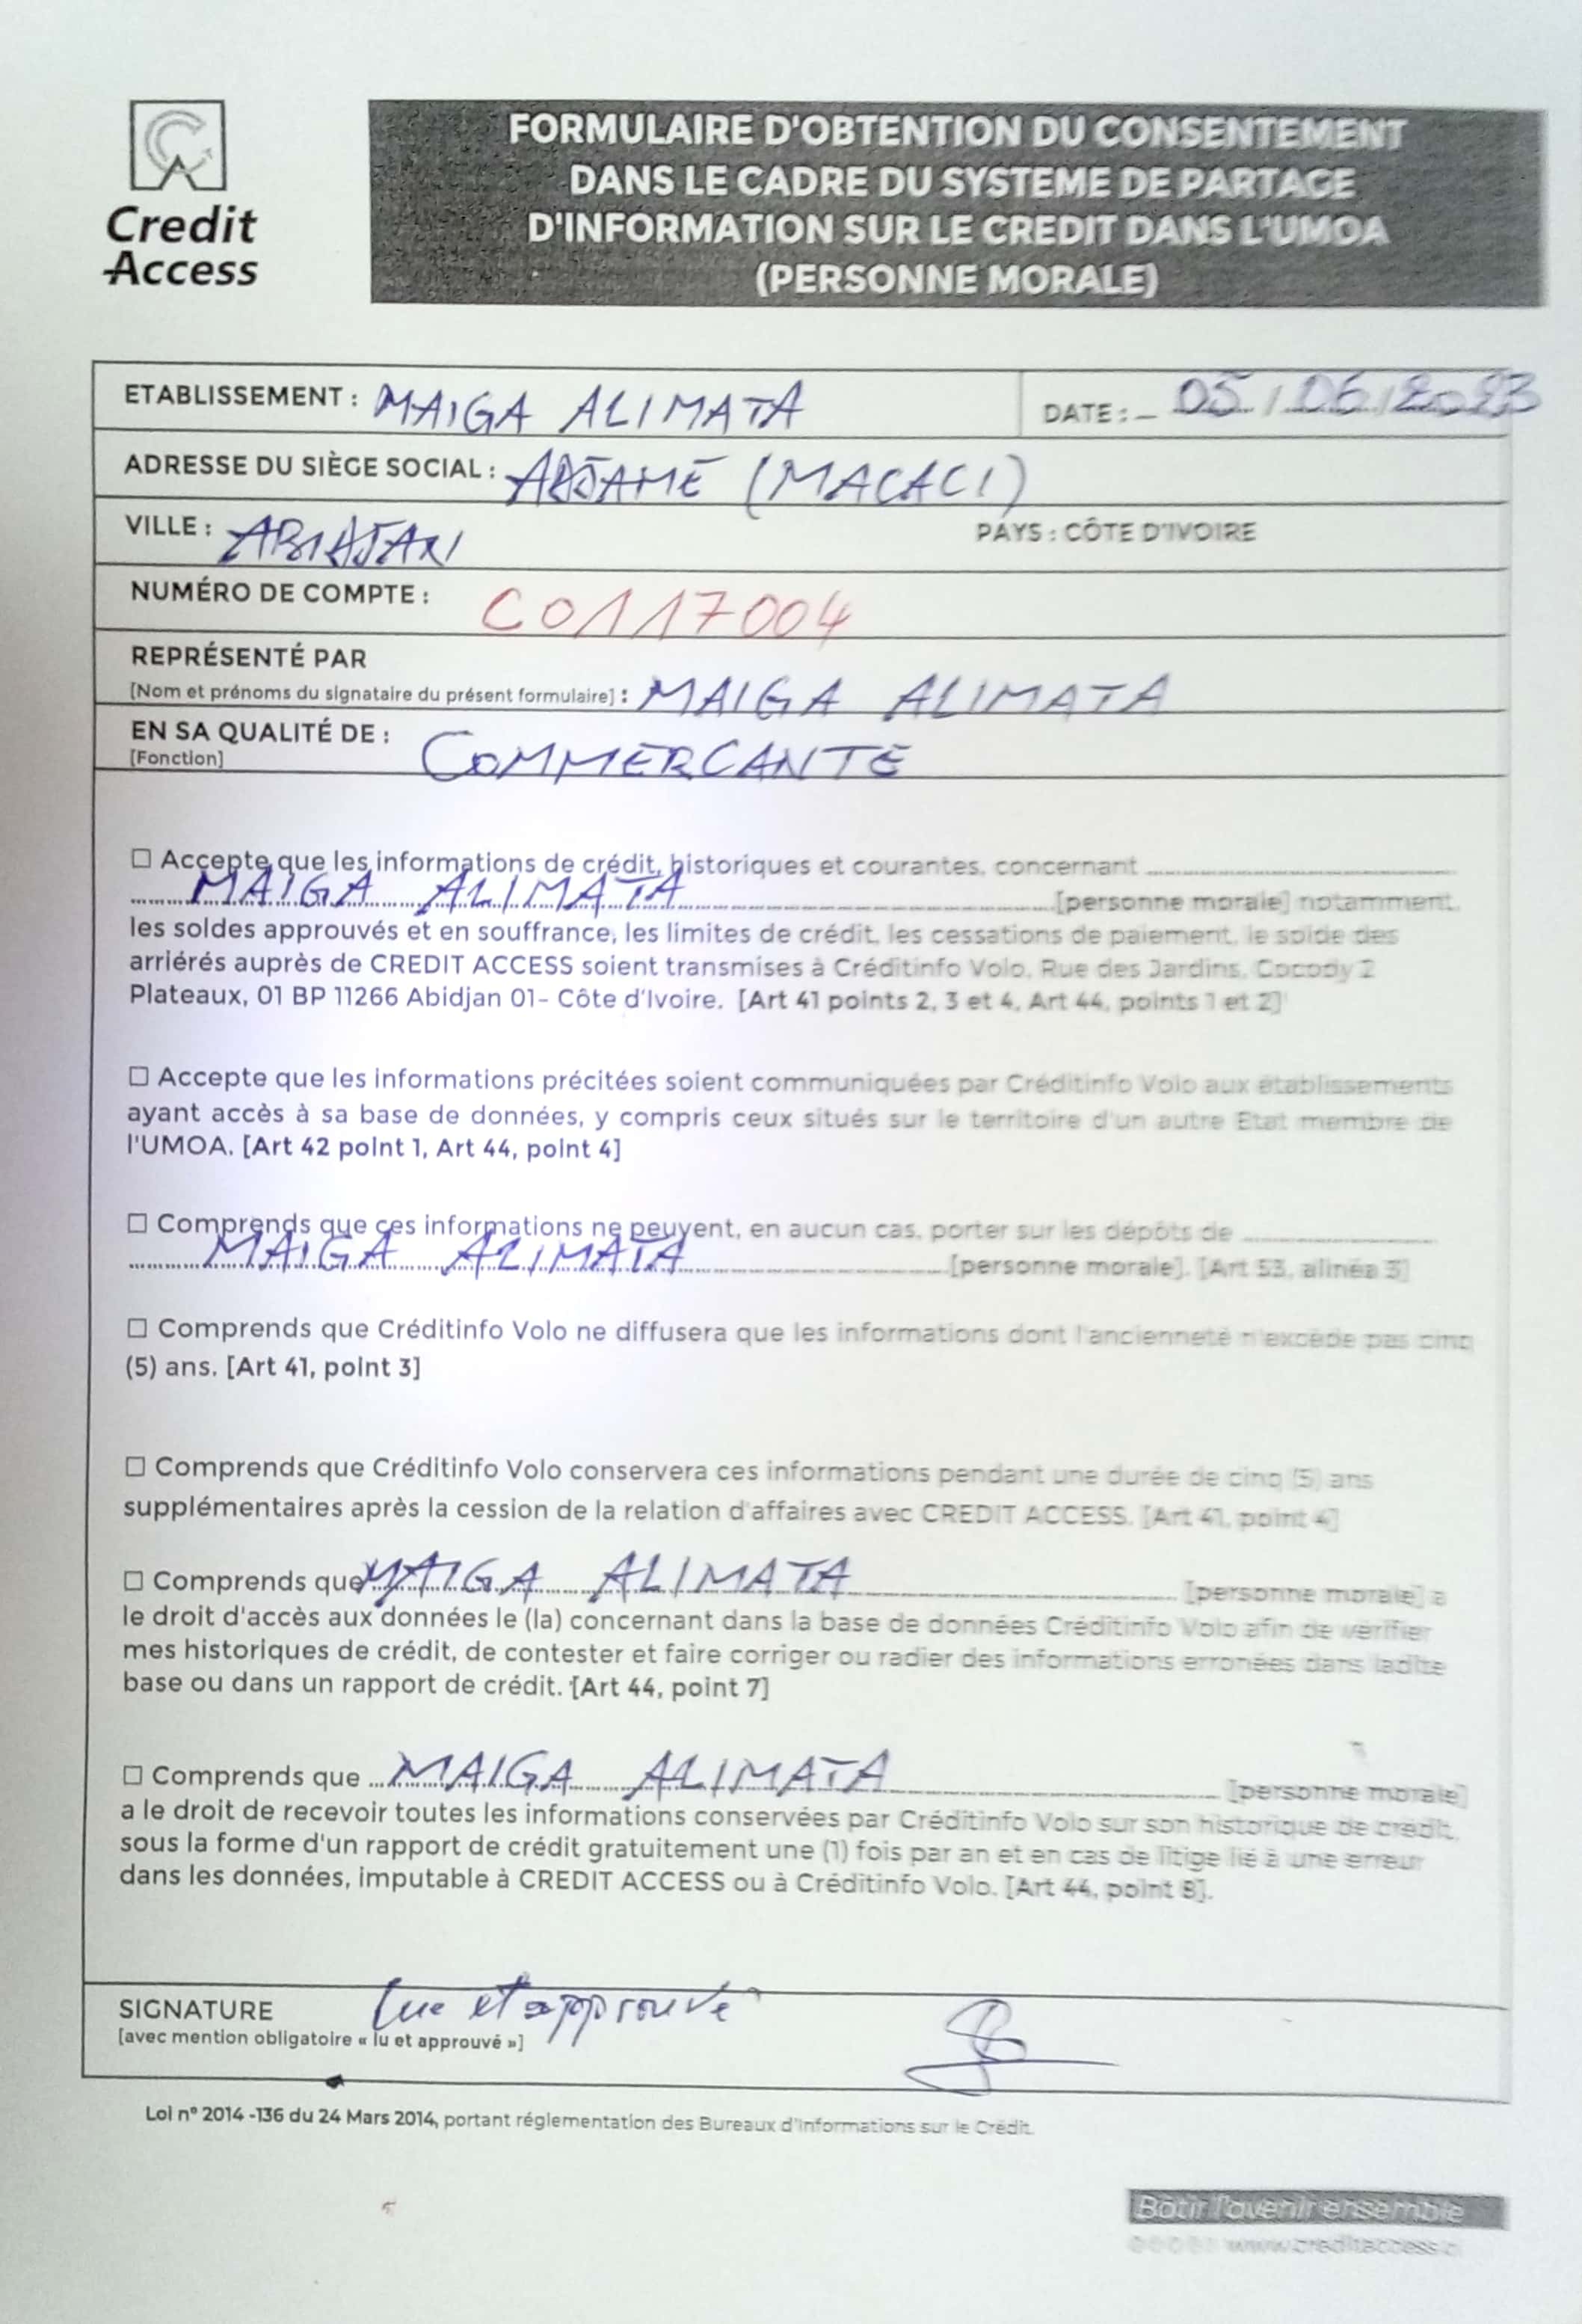 Credit
Access
FORMULAIRE D'OBTENTION DU CONSENTEMENT
DANS LE CADRE DU SYSTEME DE PARTAGE
D'INFORMATION SUR LE CREDIT DANS L'UMOA
(PERSONNE MORALE)
ETABLISSEMENT : MAIGA ALIMATA
DATE : 05/06/2023
ADRESSE DU SIÈGE SOCIAL : ADJAMÉ (MACACI)
VILLE : ABIDJAN
PAYS : CÔTE D'IVOIRE
NUMÉRO DE COMPTE : C0117004
REPRÉSENTÉ PAR
[Nom et prénoms du signataire du présent formulaire] : MAIGA ALIMATA
EN SA QUALITÉ DE : COMMERCANTE
[Fonction]
☐ Accepte que les informations de crédit, historiques et courantes, concernant
MAIGA ALIMATA [personne morale] notamment,
les soldes approuvés et en souffrance, les limites de crédit, les cessations de paiement, le solde des
arriérés auprès de CREDIT ACCESS soient transmises à Créditinfo Volo, Rue des Jardins, Cocody 2
Plateaux, 01 BP 11266 Abidjan 01- Côte d'Ivoire. [Art 41 points 2, 3 et 4, Art 44, points 1 et 2]
☐ Accepte que les informations précitées soient communiquées par Créditinfo Volo aux établissements
ayant accès à sa base de données, y compris ceux situés sur le territoire d'un autre Etat membre de
l'UMOA. [Art 42 point 1, Art 44, point 4]
☐ Comprends que ces informations ne peuvent, en aucun cas, porter sur les dépôts de
MAIGA ALIMATA [personne morale]. [Art 53, alinéa 3]
☐ Comprends que Créditinfo Volo ne diffusera que les informations dont l'ancienneté n'excède pas cinq
(5) ans. [Art 41, point 3]
☐ Comprends que Créditinfo Volo conservera ces informations pendant une durée de cinq (5) ans
supplémentaires après la cession de la relation d'affaires avec CREDIT ACCESS. [Art 41, point 4]
☐ Comprends que MAIGA ALIMATA [personne morale] a
le droit d'accès aux données le (la) concernant dans la base de données Créditinfo Volo afin de vérifier
mes historiques de crédit, de contester et faire corriger ou radier des informations erronées dans ladite
base ou dans un rapport de crédit. [Art 44, point 7]
☐ Comprends que MAIGA ALIMATA [personne morale]
a le droit de recevoir toutes les informations conservées par Créditinfo Volo sur son historique de crédit,
sous la forme d'un rapport de crédit gratuitement une (1) fois par an et en cas de litige lié à une erreur
dans les données, imputable à CREDIT ACCESS ou à Créditinfo Volo. [Art 44, point 8].
SIGNATURE lue et approuvé
[avec mention obligatoire « lu et approuvé »]
Loi n° 2014 -136 du 24 Mars 2014, portant réglementation des Bureaux d'Informations sur le Crédit.
Bâtir l'avenir ensemble
www.creditaccess.ci